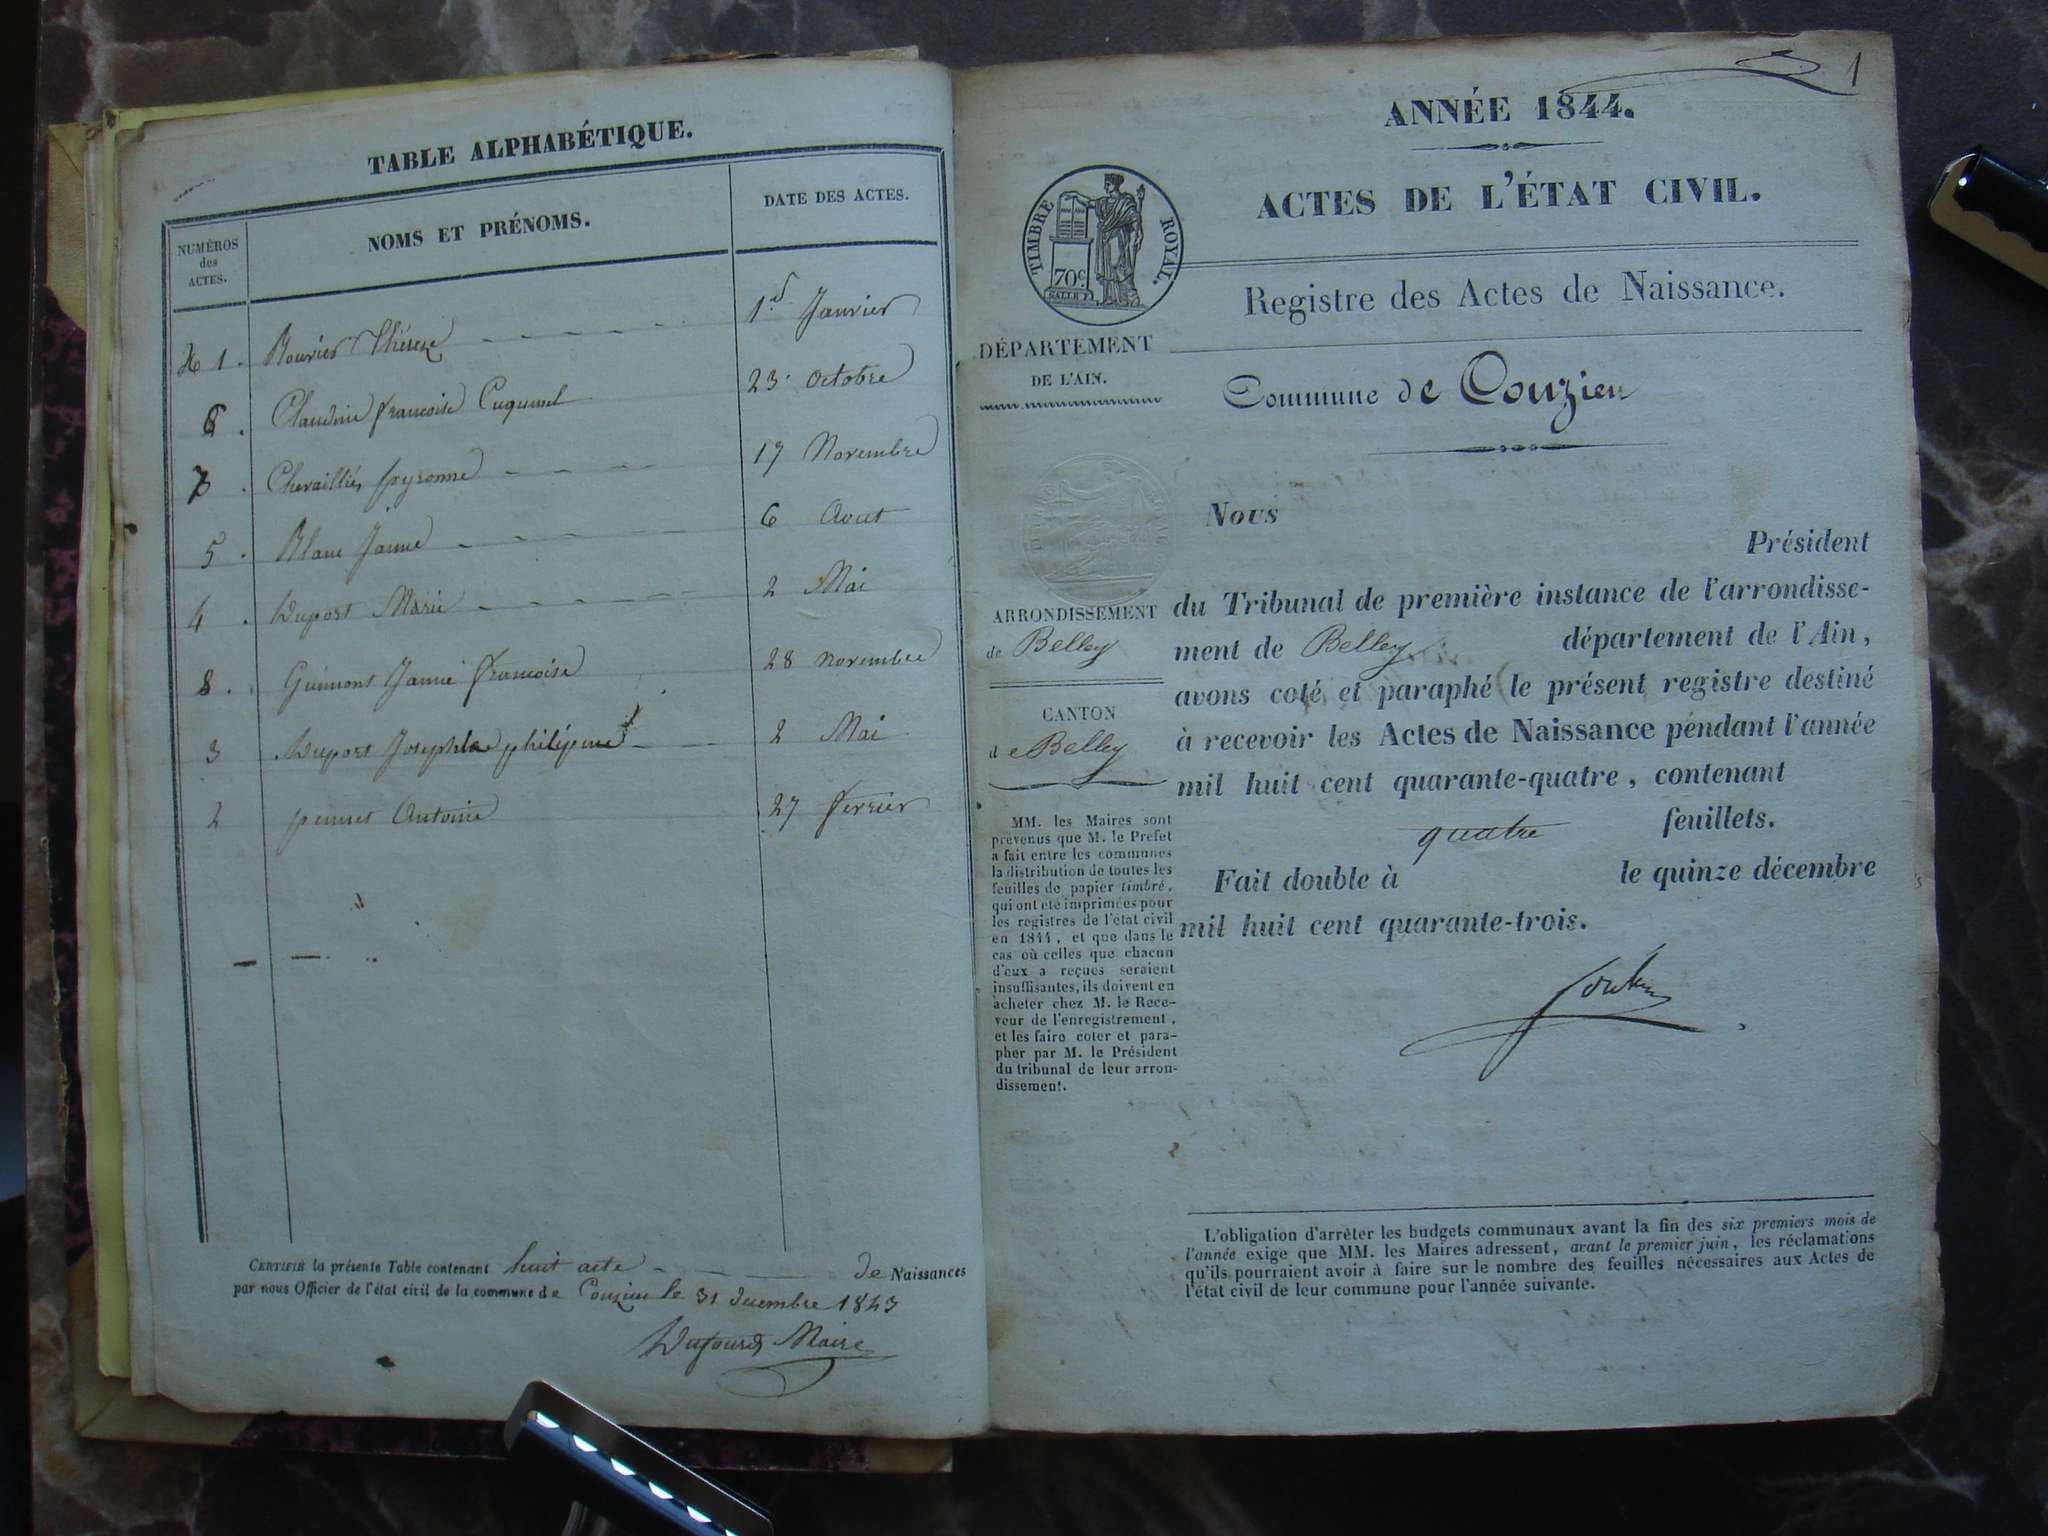 TABLE ALPHABÉTIQUE.
NUMÉROS
des
ACTES.
NOMS ET PRÉNOMS.
DATE DES ACTES.
1. Thérèse 1er Janvier
6. Claudine francoise Cuqumel 23. Octobre
7. 17 Novembre
5. Blanc Janne 6 Aout
4. Duport Marie 2 Mai
8. Janne francoise 28 novembre
3 Duport 2 Mai
2 Antoine 27 fevrier
CERTIFIÉ la présente Table contenant huit acte de Naissances
par nous Officier de l'état civil de la commune de Conzieu le 31 decembre 1843
Dufour Maire
1
ANNÉE 1844.
ACTES DE L'ÉTAT CIVIL.
TIMBRE ROYAL.
70c
Registre des Actes de Naissance.
DÉPARTEMENT
DE L'AIN.
Commune de Conzieu
ARRONDISSEMENT
de Belley
CANTON
de Belley
MM. les Maires sont
prévenus que M. le Préfet
a fait entre les communes
la distribution de toutes les
feuilles de papier timbré,
qui ont été imprimées pour
les registres de l'état civil
en 1844, et que dans le
cas où celles que chacun
d'eux a reçues seraient
insuffisantes, ils doivent en
acheter chez M. le Rece-
veur de l'enregistrement,
et les faire coter et para-
pher par M. le Président
du tribunal de leur arron-
dissement.
Nous
Président
du Tribunal de première instance de l'arrondisse-
ment de Belley département de l'Ain,
avons coté et paraphé le présent registre destiné
à recevoir les Actes de Naissance pendant l'année
mil huit cent quarante-quatre, contenant
quatre feuillets.
Fait double à le quinze décembre
mil huit cent quarante-trois.
L'obligation d'arrêter les budgets communaux avant la fin des six premiers mois de
l'année exige que MM. les Maires adressent, avant le premier juin, les réclamations
qu'ils pourraient avoir à faire sur le nombre des feuilles nécessaires aux Actes de
l'état civil de leur commune pour l'année suivante.